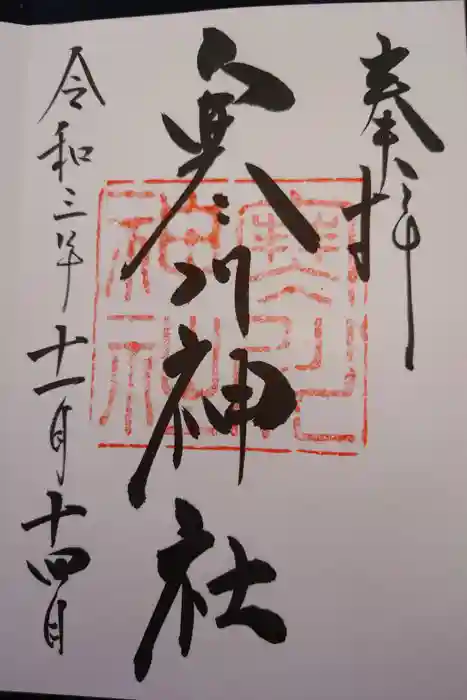 奉拝
寒川神社
寒川神社
令和三年十一月十四日